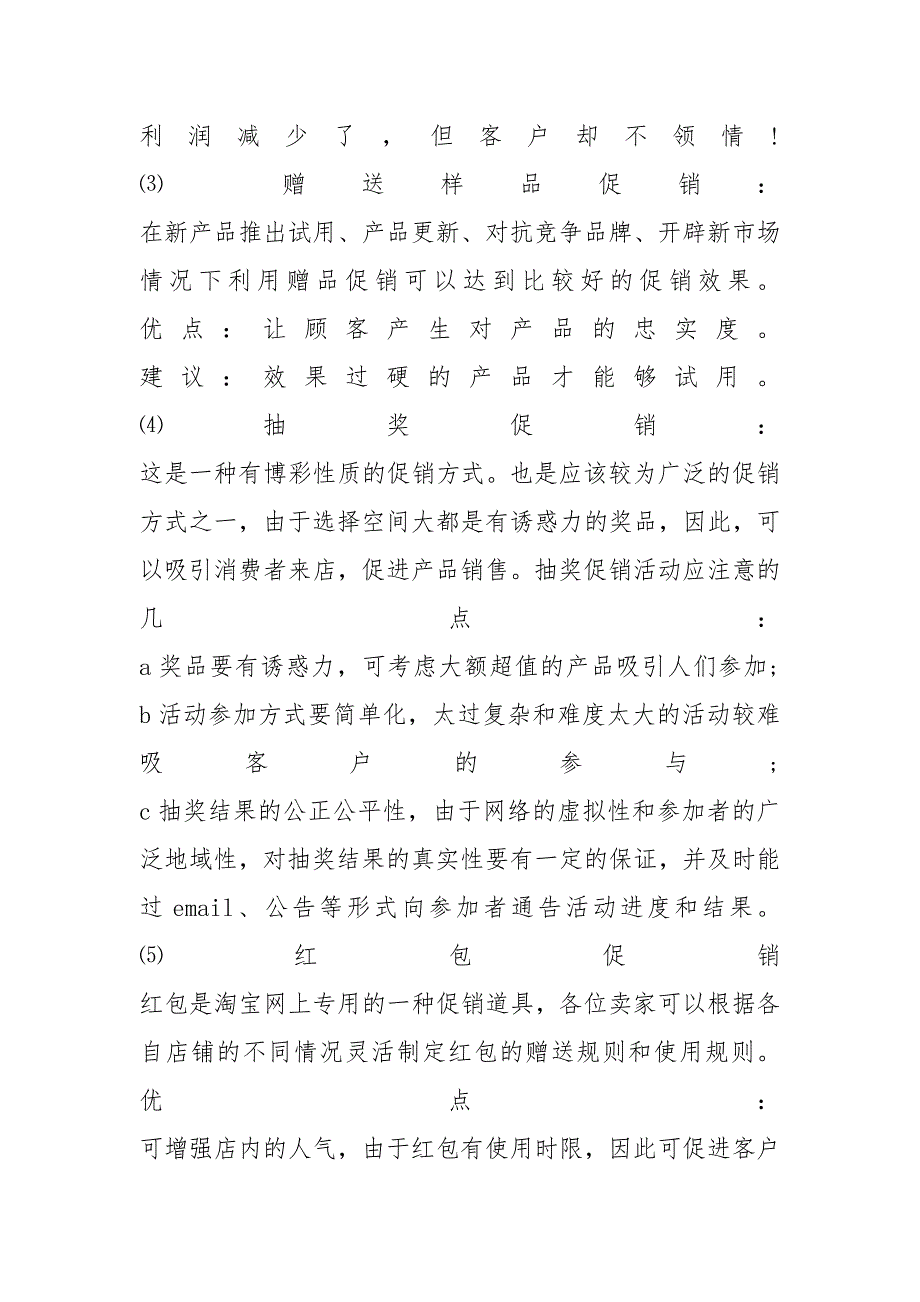 利润减少了，但客户却不领情!
⑶ 赠送样品促销：
在新产品推出试用、产品更新、对抗竞争品牌、开辟新市场
情况下利用赠品促销可以达到比较好的促销效果。
优点：让顾客产生对产品的忠实度。
建议：效果过硬的产品才能够试用。
⑷ 抽奖促销：
这是一种有博彩性质的促销方式。也是应该较为广泛的促销
方式之一，由于选择空间大都是有诱惑力的奖品，因此，可
以吸引消费者来店，促进产品销售。抽奖促销活动应注意的
几点：
a 奖品要有诱惑力，可考虑大额超值的产品吸引人们参加;
b 活动参加方式要简单化，太过复杂和难度太大的活动较难
吸客户的参与;
c 抽奖结果的公正公平性，由于网络的虚拟性和参加者的广
泛地域性，对抽奖结果的真实性要有一定的保证，并及时能
过 email、公告等形式向参加者通告活动进度和结果。
⑸ 红包促销
红包是淘宝网上专用的一种促销道具，各位卖家可以根据各
自店铺的不同情况灵活制定红包的赠送规则和使用规则。
优点：
可增强店内的人气，由于红包有使用时限，因此可促进客户